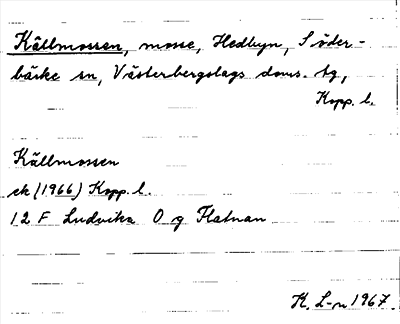 Källmossen, mosse, Hedbyn, Söder-
bärke sn, Västerbergslags doms. tg,
Kopp. l.
Källmossen
ek (1966) Kopp. l.
12 F Ludvika O g Flatnan
K. L-n 1967.